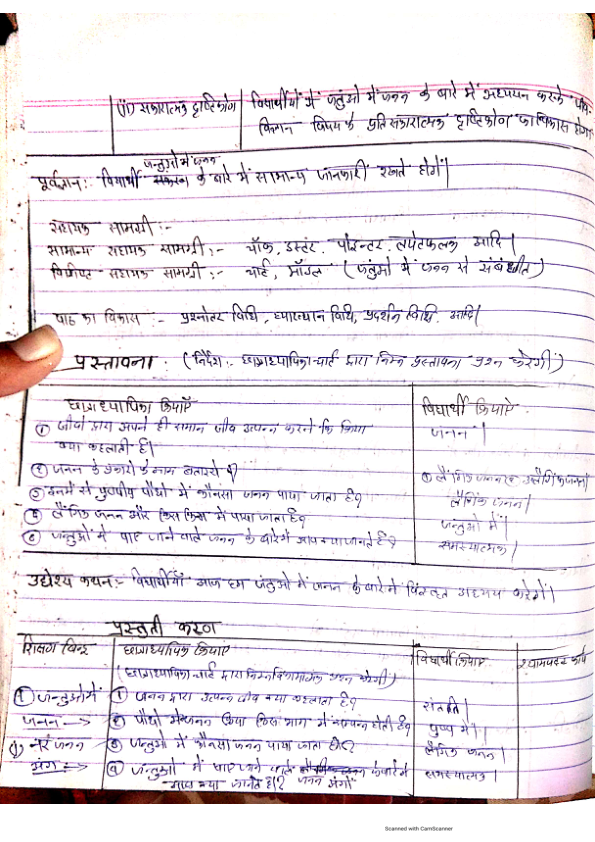 (ii) सकारात्मक दृष्टिकोण
विद्यार्थीयों में जंतुओ में जनन के बारे में अध्ययन करके
विज्ञान विषय के प्रति सकारात्मक दृष्टिकोण का विकास होगा
जन्तुओ में जनन
पूर्वज्ञान:- विद्यार्थी के बारे में सामान्य जानकारी रखते होगें|
सहायक सामग्री:-
सामान्य सहायक सामग्री:- चॉक, डस्टर, पॉइन्टर, लपेटफलक आदि|
विशिष्ट सहायक सामग्री:- चार्ट, मॉडल (जंतुओ में जनन से संबंधीत)
पाठ का विकास:- प्रश्नोतर विधि, व्याख्यान विधि, प्रदर्शन विधि आदि|
प्रस्तावना:- (निर्देश:- छात्राध्यापिका चार्ट द्वारा निम्न प्रस्तावना प्रश्न करेगी)
छात्राध्यापिका क्रियाएँ
विद्यार्थी क्रियाएं
① जीवो द्वारा अपने ही समान जीव उत्पन्न करने कि क्रिया
क्या कहलाती है।
जनन|
② जनन के प्रकारो के नाम बताओ?
लैंगिक जनन अलैंगिक जनन
③ इनमें से पुष्पीय पौधो में कौनसा जनन पाया जाता है?
लैंगिक जनन|
लैंगिक जनन और किस किस में पाया जाता है?
जन्तुओ में|
जन्तुओ में पाए जाने वाले जनन के बारेमे आप क्या जानते है?
समस्यात्मक|
उद्येश्य कथन:- विद्यार्थीयों आज हम जंतुओ में जनन के बारे मे विस्तृत अध्ययन करेगें|
प्रस्तती करण
शिक्षण बिन्दु
छात्राध्यापिका क्रियाएं
विद्यार्थी क्रियाएं
श्यामपट्ट कार्य
(छात्राध्यापिका चार्ट द्वारा निम्न विकासात्मक प्रश्न करेगी)
① जन्तुओमें
जनन
① जनन द्वारा उत्पन्न जीव क्या कहलाता है?
संतति|
② पौधो में जनन क्रिया किस भाग में सम्पन्न होती है?
पुष्प में|
(i) नर जनन
अंग
③ जन्तुओ में कौनसा जनन पाया जाता है?
लैंगिक जनन|
④ जन्तुओ में पाए जाने वाले के बारेमे
समस्यात्मक|
आप क्या जानते हो? जनन अंगों
Scanned with CamScanner